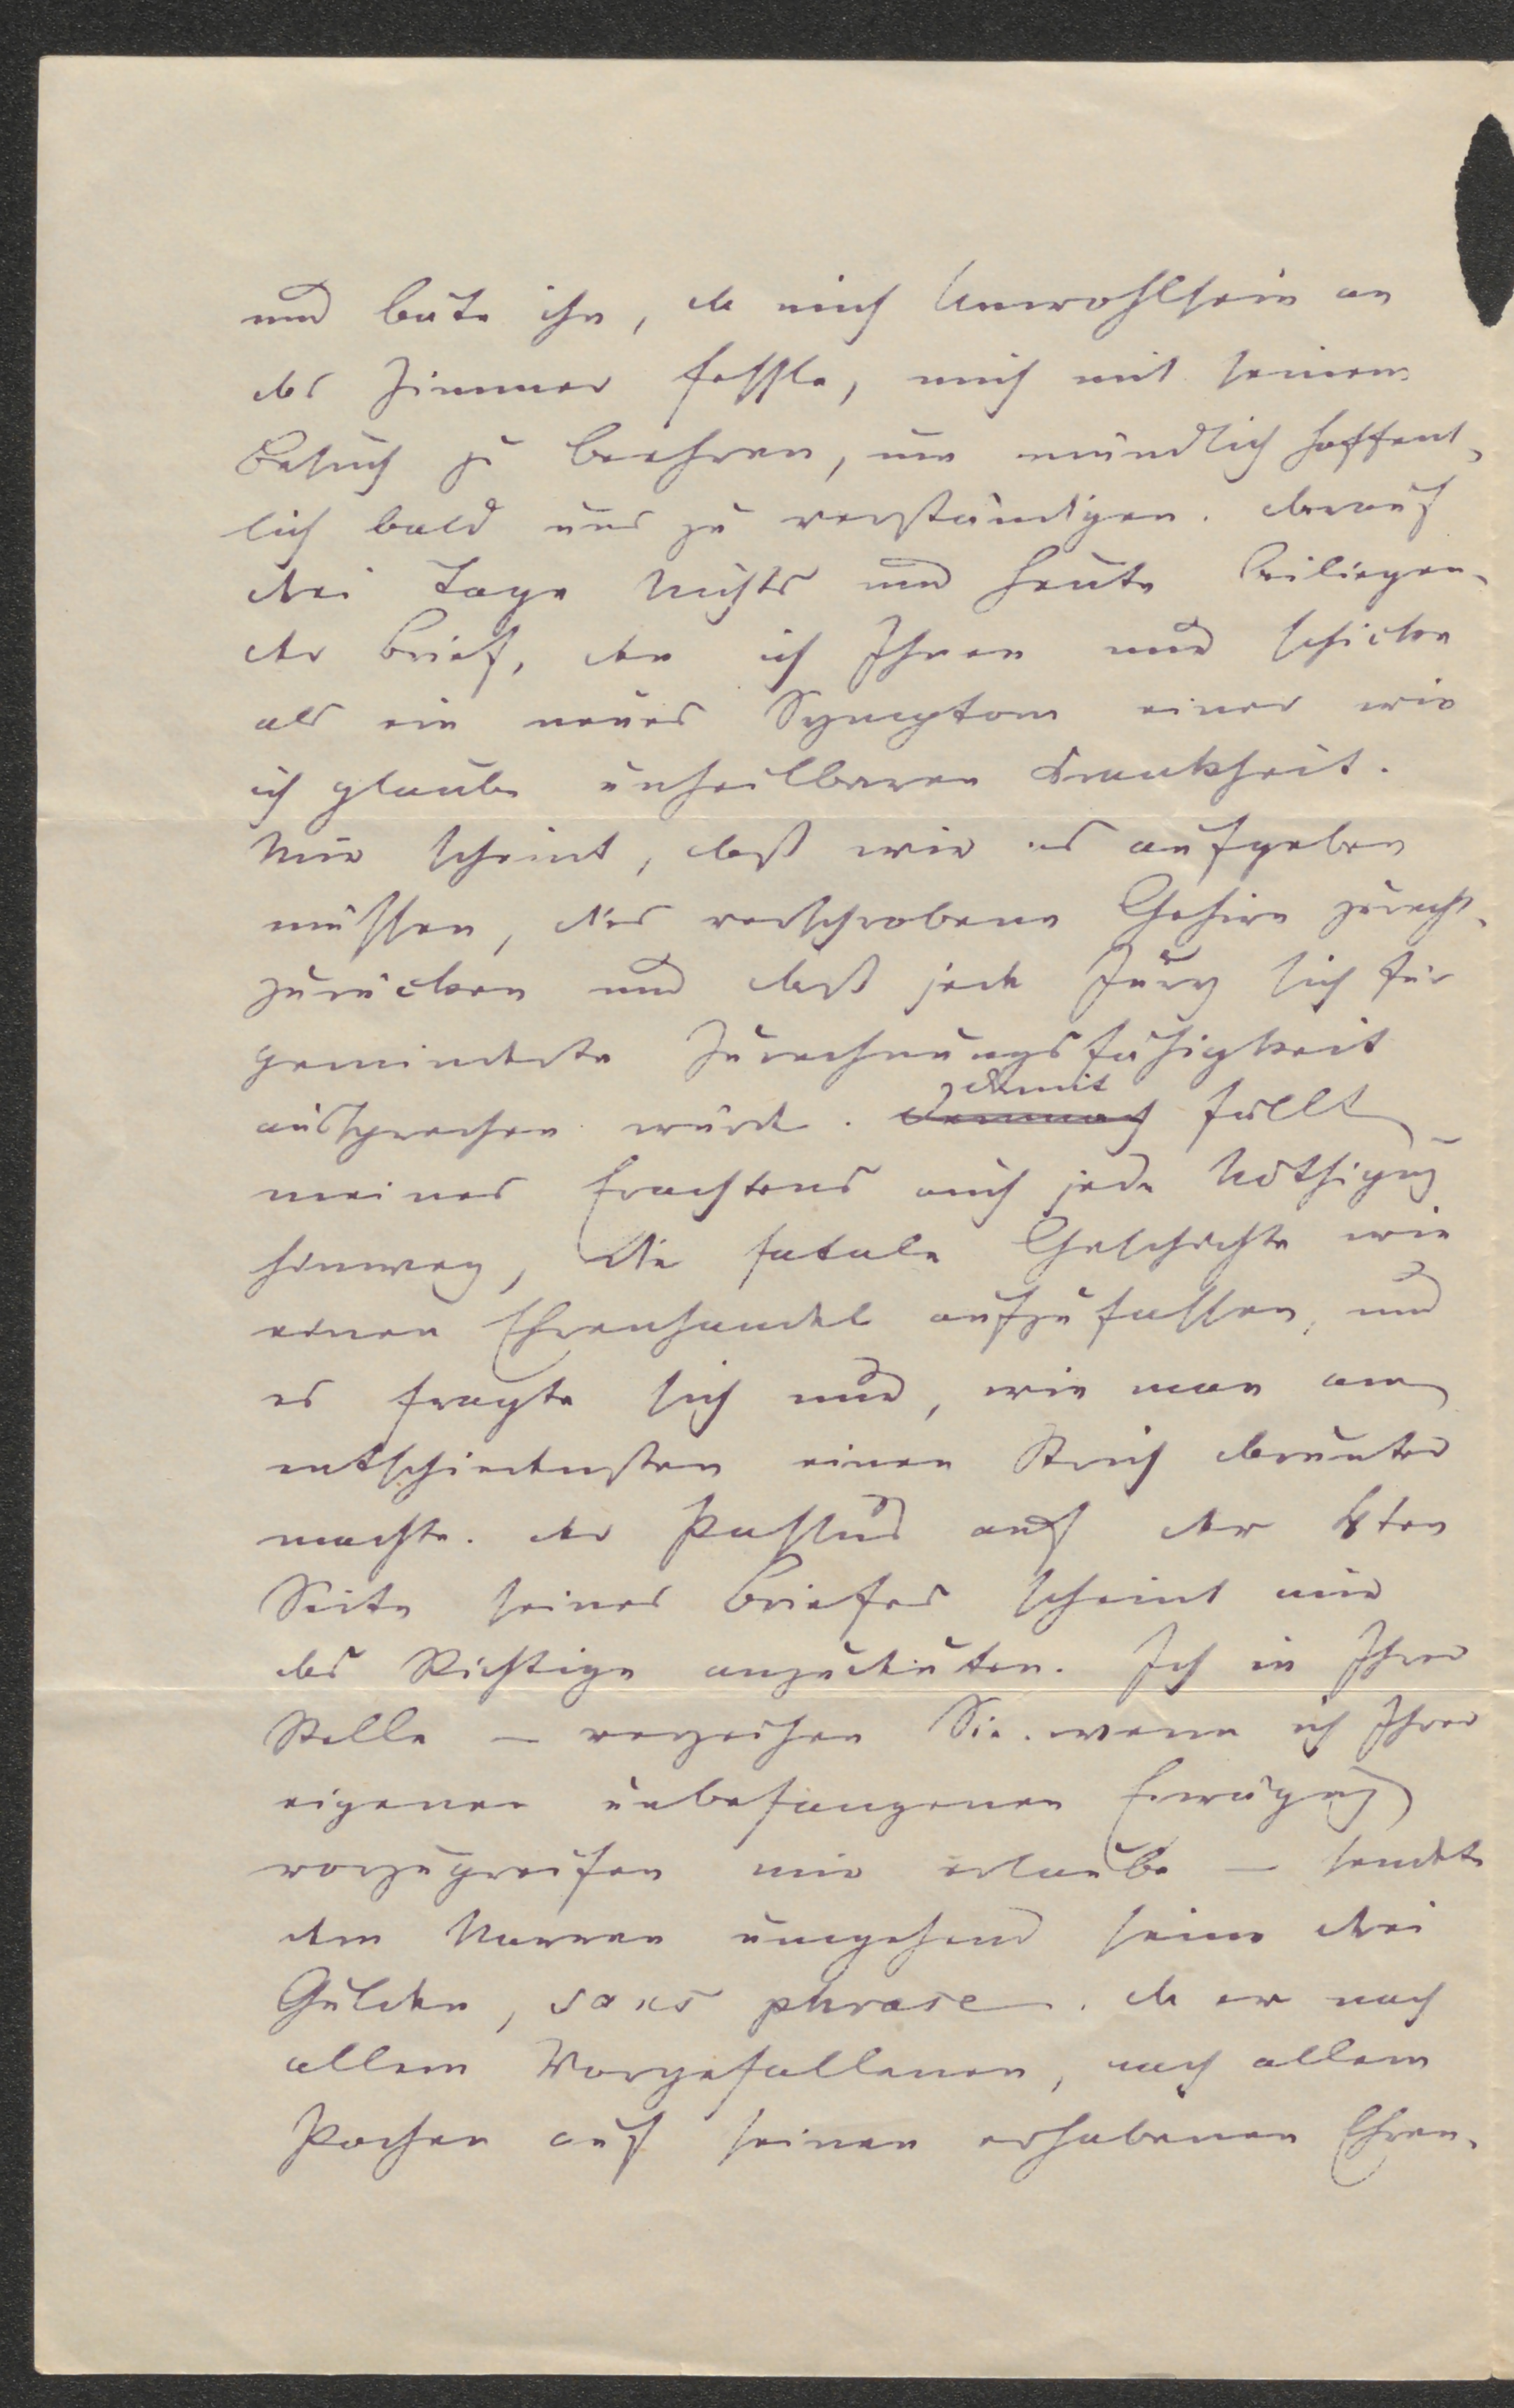 und bäte ihn, da mich Unwohlsein an
das Zimmer feßle, mich mit seinem
Besuch zu beehren, um mündlich hoffent-
lich bald uns zu verständigen. Darauf
drei Tage Nichts und heute beiliegen-
der Brief, den ich Ihnen nur schicke
als ein neues Symptom einer wie
ich glaube unheilbaren Krankheit.
Mir scheint, daß wir es aufgeben
müssen, dies verschrobene Gehirn zurecht-
zurücken und daß jede Jury sich für
geminderte Zurechnungsfähigkeit
aussprechen würde. Demnach damit fällt
meines Erachtens auch jede Nöthigung
hinweg, die fatale Geschichte wie
einen Ehrenhandel aufzufassen, und
es fragte sich nur, wie man am
entschiedensten einen Strich darunter
machte. Der Passus auf der 4ten
Seite seines Briefes scheint mir
das Richtige anzudeuten. Ich in Ihrer
Stelle – verzeihen Sie, wenn ich Ihrer
eigenen unbefangenen Erwägung
vorzugreifen mir erlaube – sendete
dem Narren umgehend seine drei
Gulden, sans phrase. Da er nach
allem Vorgefallenen, nach allem
Pochen auf seinen erhabenen Ehren-